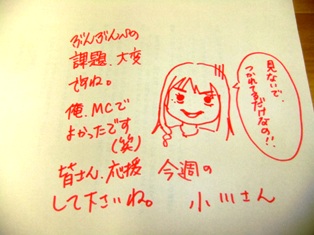 ぶんぶんの
課題、大変
ですね。
俺、MCで
よかったです
(笑)
皆さん、応援
して下さいね。
見ないで、
つかれてるだけなの!!
今週の
小川さん